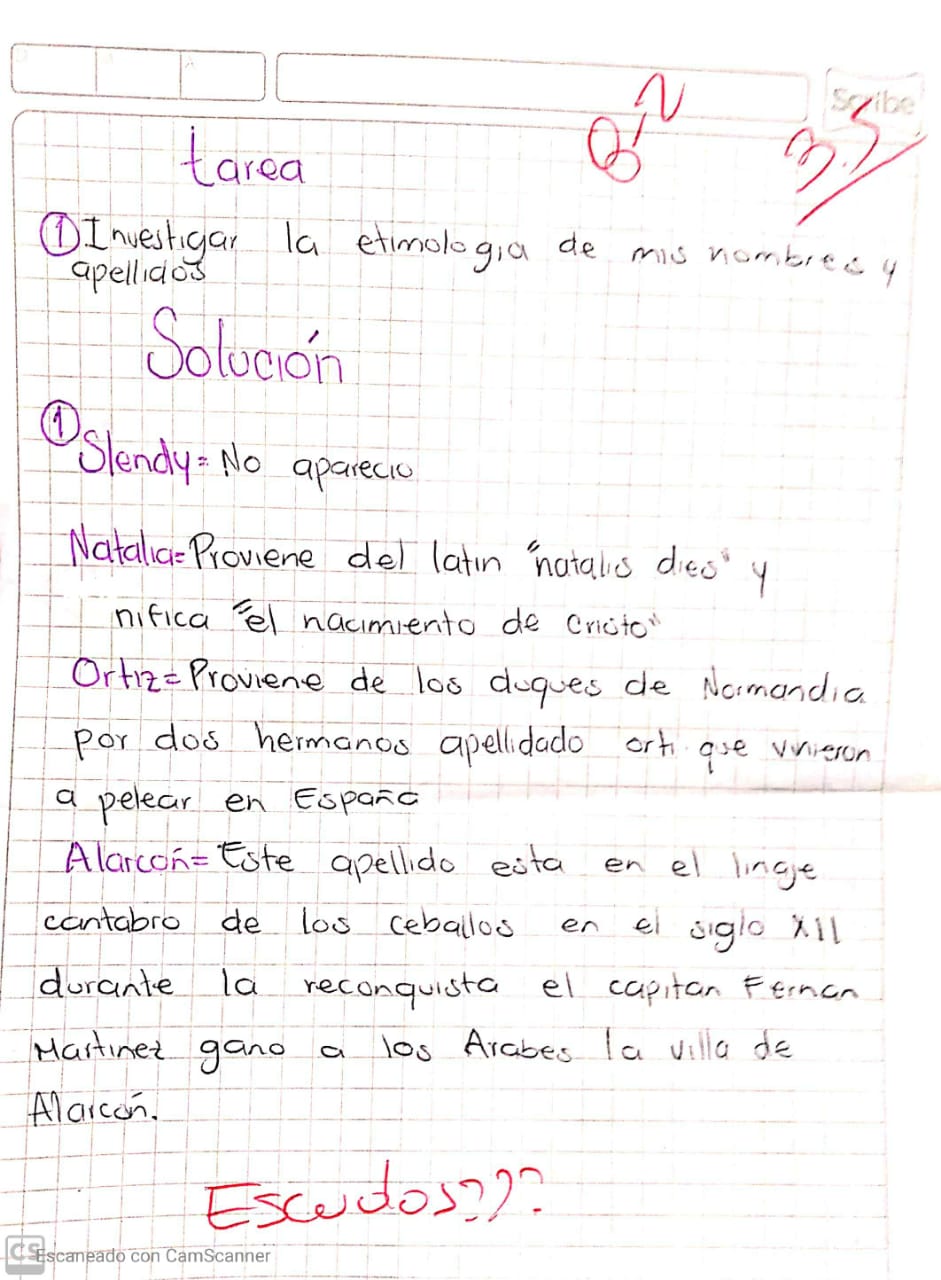 Scribe
8,2
3.5
tarea
① Investigar la etimologia de mis nombres y
apellidos
Solución
①
Slendy= No aparecio
Natalia= Proviene del latin "natalis dies" y
nifica "el nacimiento de Cristo"
Ortiz= Proviene de los duques de Normandia
por dos hermanos apellidado orti que vinieron
a pelear en España
Alarcón= Este apellido esta en el linaje
cantabro de los ceballos en el siglo XII
durante la reconquista el capitan Fernan
Martinez gano a los Arabes la villa de
Alarcón.
Escudos???
CS Escaneado con CamScanner